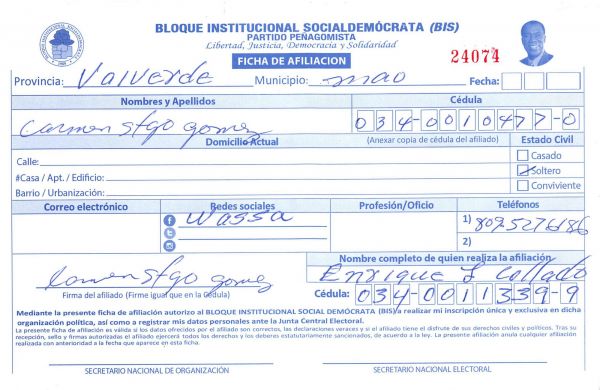 BLOQUE INSTITUCIONAL SOCIALDEMÓCRATA (BIS)
PARTIDO PEÑAGOMISTA
Libertad, Justicia, Democracia y Solidaridad
FICHA DE AFILIACION
24074
Provincia: Valverde Municipio: mao Fecha:
Nombres y Apellidos Cédula
Carmen Stgo Gomez 034-0010477-0
Domicilio Actual (Anexar copia de cédula del afiliado) Estado Civil
Calle: Casado
#Casa / Apt. / Edificio: Soltero
Barrio / Urbanización: Conviviente
Correo electrónico Redes sociales Profesión/Oficio Teléfonos
Wassa 1) 8095276186
2)
Nombre completo de quien realiza la afiliación
Carmen Stgo Gomez Enrique F Collado
Firma del afiliado (Firme igual que en la Cédula) Cédula: 034-0011339-9
Mediante la presente ficha de afiliación autorizo al BLOQUE INSTITUCIONAL SOCIAL DEMÓCRATA (BIS)/a realizar mi inscripción única y exclusiva en dicha
organización política, así como a registrar mis datos personales ante la Junta Central Electoral.
La presente ficha de afiliación es válida si los datos ofrecidos por el afiliado son correctos, las declaraciones veraces y si el afiliado tiene el disfrute de sus derechos civiles y políticos. Tras su
recepción, sello y firmas autorizadas el afiliado ejercerá todos los derechos y los deberes estatutariamente sancionados, de acuerdo a la ley. La presente afiliación anula cualquier afiliación
realizada con anterioridad a la fecha que aparece en esta ficha.
SECRETARIO NACIONAL DE ORGANIZACIÓN SECRETARIO NACIONAL ELECTORAL